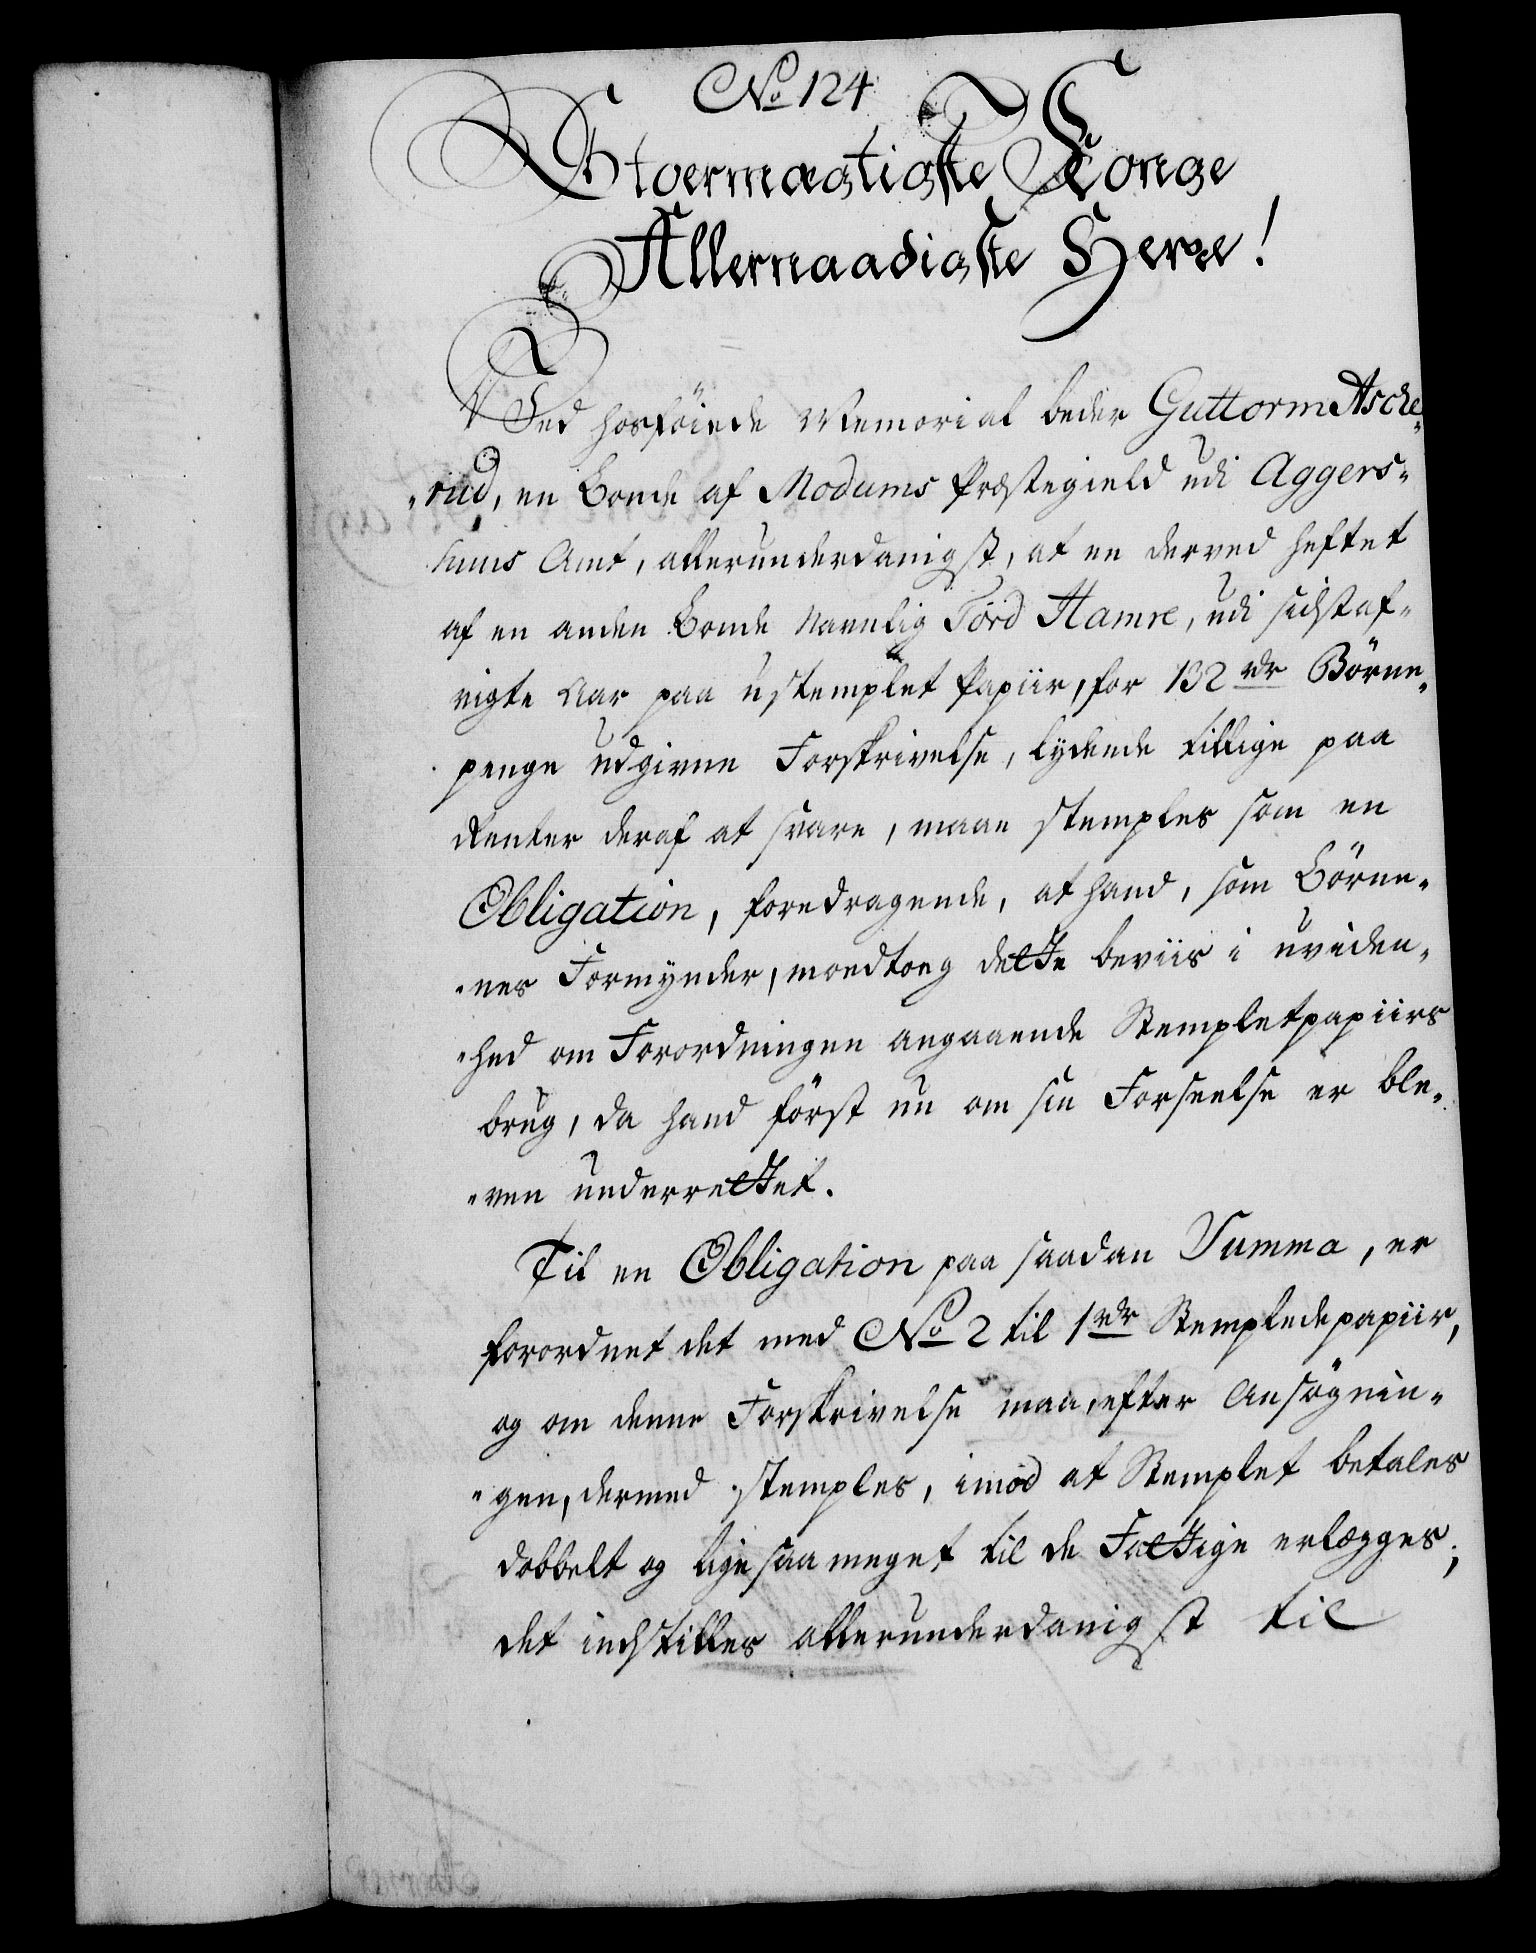 No 124
Stoermægtigste Konge
Allernaadigste Herre!
Ved hosföiede Memorial beder Guttorm Asche„
„rud, en Bonde af Modums Præstegield udi Aggers„
huus Amt, allerunderdanigst, at en derved heftet
af en anden Bonde Navnlig Tord Hamre, udi sidstaf„
vigte Aar paa ustemplet Papiir, for 132 rdr Börne„
penge udgivne Forskrivelse, lydende tillige paa
Renter deraf at svare, maae stemples som en
Obligation, foredragende, at hand, som Börne„
„nes Formynder, moedtoeg dette beviis i uviden„
„hed om Forordningen angaaende Stempletpapiirs
brug, da hand först nu om sin Forseelse er ble„
„ven underrettet.
Til en Obligation paa saadan Summa, er
forordnet det med No 2 til 1 rdr Stempledepapiir,
og om denne Forskrivelse maa, efter Ansögnin„
„gen, dermed stemples, imod at Stemplet betales
dobbelt og lige saa meget til de Fattige erlægges;
det indstilles allerunderdanigst til